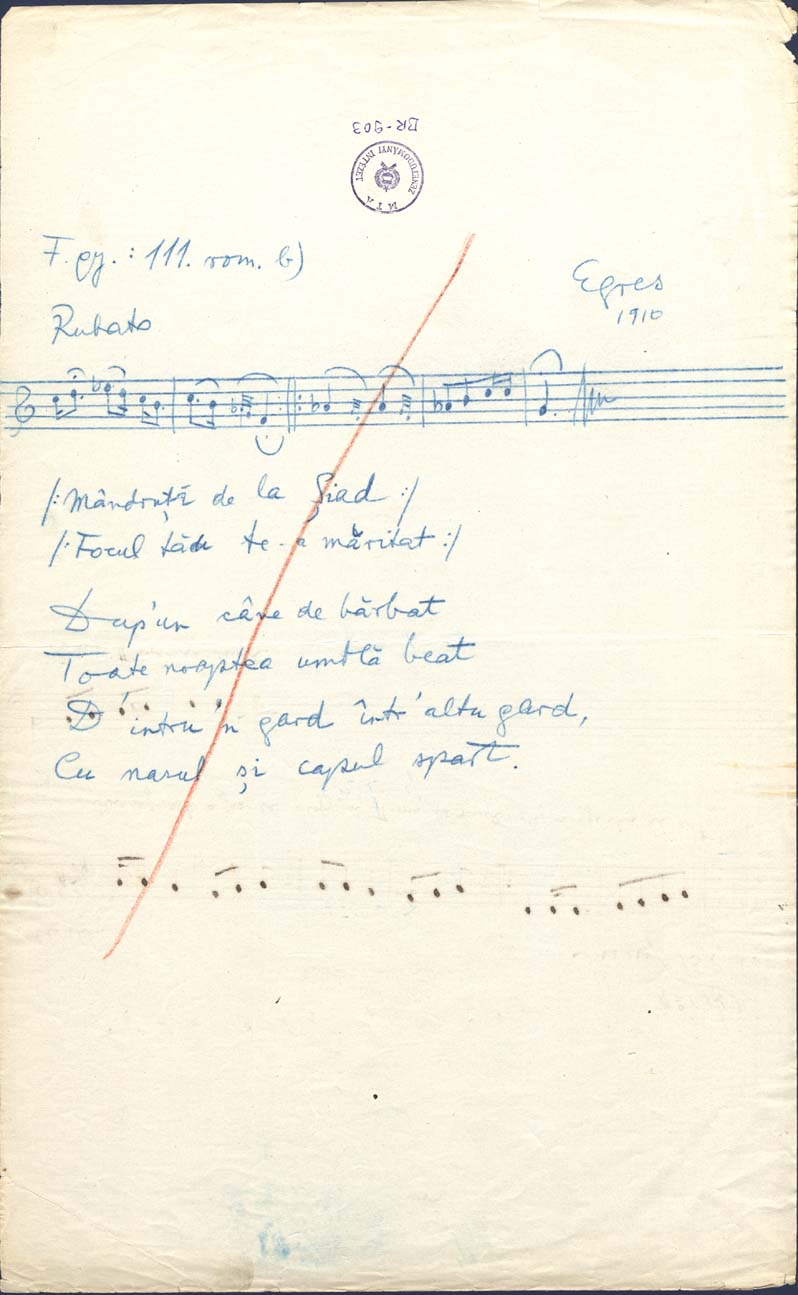 BR-903
ZENETUDOMÁNYI INTÉZET
MTA
F. gy. : 111. rom. b)
Egres
1910
Rubato
/: Mândruță de la Giad :/
/: Focul tău te-a măritat :/
Dup'un câne de bărbat
Toate noaptea umblă beat
D'intru'n gard într'altu gard,
Cu nasul și capul spart.